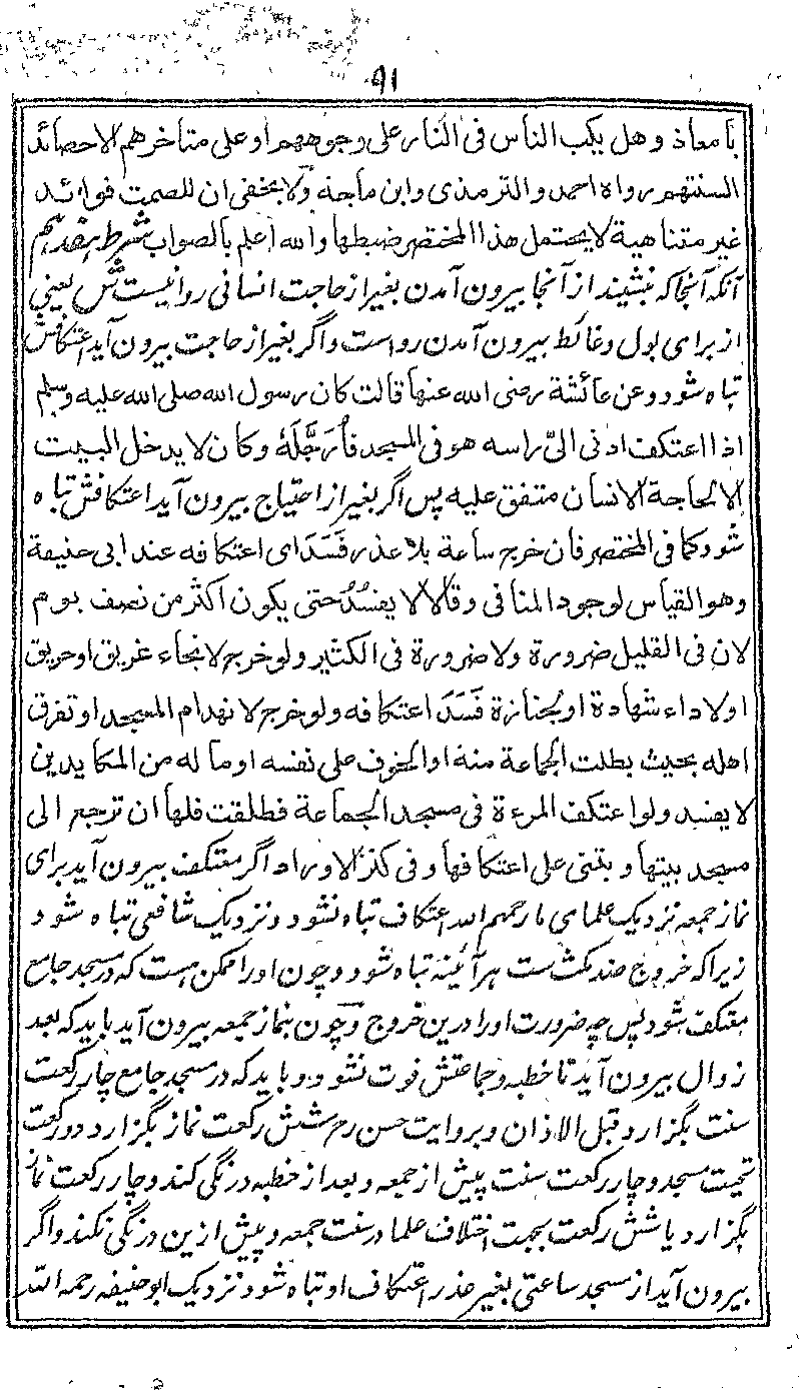 ۹۱
یا معاذ و هل یکب الناس فی النار علی وجوههم او علی مناخرهم الا حصائد
السنتهم رواه احمد والترمذی وابن ماجة ولا یخفی ان للصمت فوائد
غیر متناهیة لا یحتمل هذا المختصر ضبطها والله اعلم بالصواب شرط
آنکه آنجا که نشیند از آنجا بیرون آمدن بغیر از حاجت انسانی روا نیست ش یعنی
از برای بول و غائط بیرون آمدن رواست و اگر بغیر از حاجت بیرون آید اعتکافش
تباه شود و عن عائشة رضی الله عنها قالت کان رسول الله صلی الله علیه وسلم
اذا اعتکف ادنی الیّ راسه هو فی المسجد فأرجّله وکان لا یدخل البیت
الا لحاجة الانسان متفق علیه پس اگر بغیر از احتیاج بیرون آید اعتکافش تباه
شود کما فی المختصر فان خرج ساعة بلا عذر فَسَدَ ای اعتکافه عند ابی حنیفة
وهو القیاس لوجود المنافی وقالا لا یفسُدُ حتی یکون اکثر من نصف یوم
لان فی القلیل ضرورة ولا ضرورة فی الکثیر ولو خرج لانجاء غریق او حریق
او لاداء شهادة او لجنازة فَسَدَ اعتکافه ولو خرج لانهدام المسجد او تفرق
اهله بحیث بطلت الجماعة منه او الخوف علی نفسه او ماله من المکایدین
لا یفسد ولو اعتکف المرءة فی مسجد الجماعة فطلقت فلها ان ترجع الی
مسجد بیتها و بتنی علی اعتکافها و فی کنز الاوراد اگر معتکف بیرون آید برای
نماز جمعه نزدیک علمای ما رحمهم الله اعتکاف تباه نشود و نزدیک شافعی تباه شود
زیرا که خروج ضد مکث ست هرآئینه تباه شود و چون او را ممکن است که در مسجد جامع
معتکف شود پس چه ضرورت او را درین خروج و چون بنماز جمعه بیرون آید باید که بعد
زوال بیرون آید تا خطبه و جماعتش فوت نشود و باید که در مسجد جامع چار رکعت
سنت بگزارد قبل الاذان و بروایت حسن رح شش رکعت نماز بگزارد دو رکعت
تحیت مسجد و چار رکعت سنت پیش از جمعه و بعد از خطبه درنگی کند و چار رکعت نماز
بگزارد یا شش رکعت بجهت اختلاف علما در سنت جمعه و پیش ازین درنگی نکند و اگر
بیرون آید از مسجد ساعتی بغیر عذر اعتکاف او تباه شود نزدیک ابو حنیفه رحمه الله